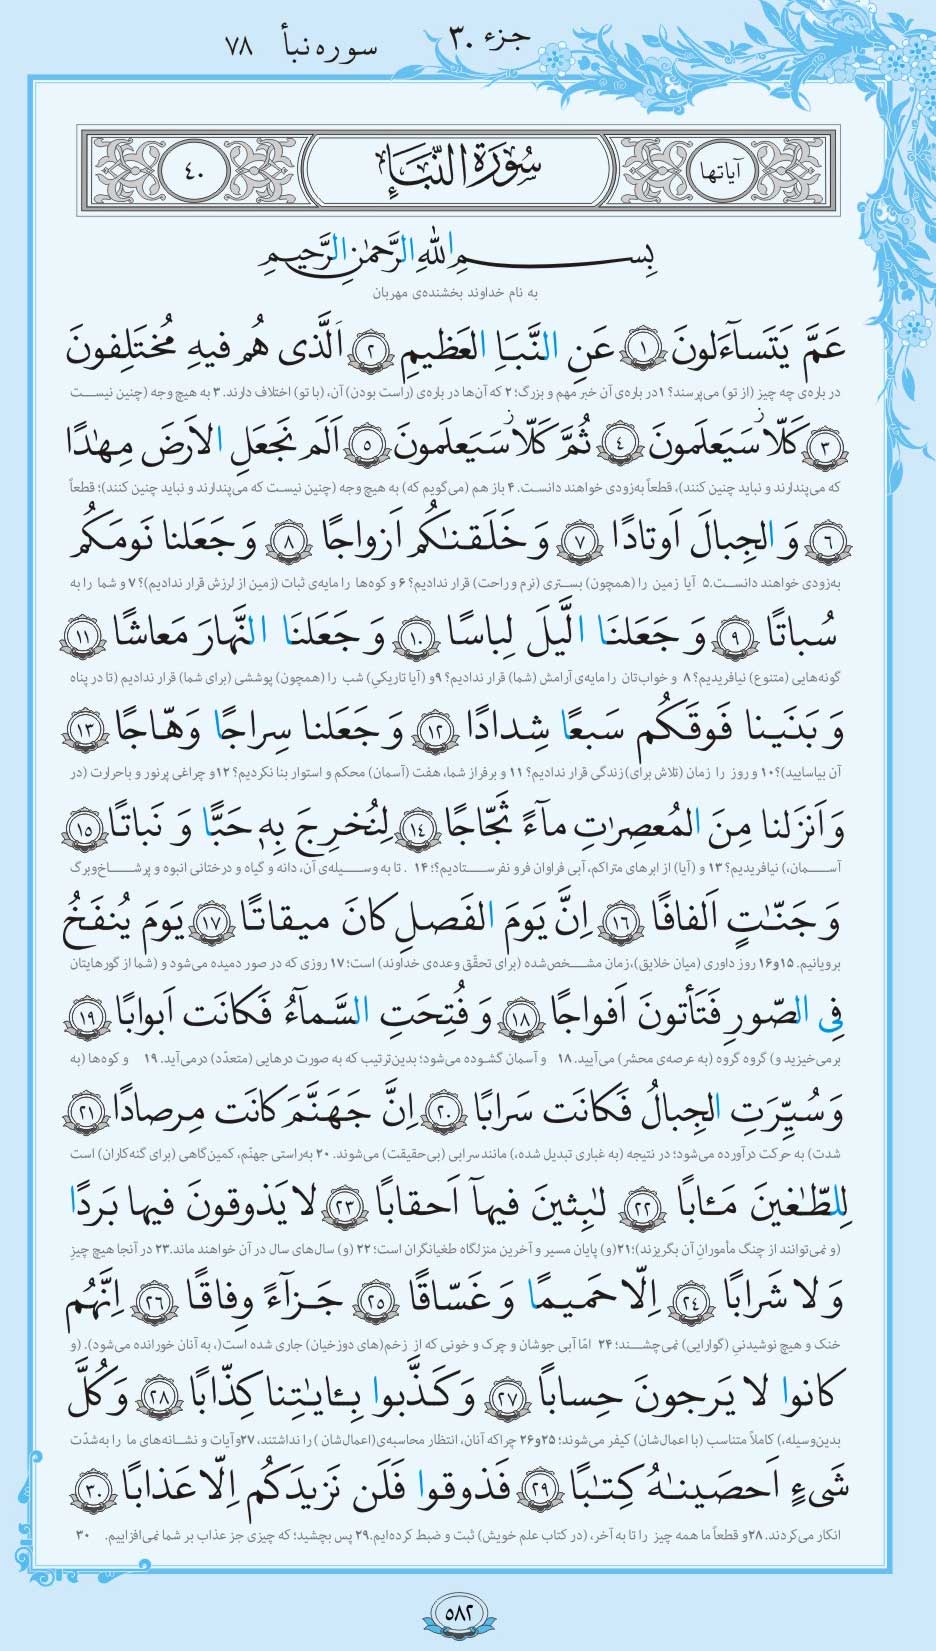 جزء ۳۰
سوره نبأ ۷۸
آیاتها
سُورَةُ النَّبَإِ
٤٠
بِسمِ اللهِ الرَّحمٰنِ الرَّحیمِ
به نام خداوند بخشنده‌ی مهربان
عَمَّ یَتَسآءَلونَ ﴿١﴾ عَنِ النَّبَاِ العَظیمِ ﴿٢﴾ اَلَّذی هُم فیهِ مُختَلِفونَ
در باره‌ی چه چیز (از تو) می‌پرسند؟ ۱ در باره‌ی آن خبر مهم و بزرگ؛ ۲ که آن‌ها در باره‌ی (راست بودن) آن، (با تو) اختلاف دارند. ۳ به هیچ وجه (چنین نیست
﴿٣﴾ کَلّا سَیَعلَمونَ ﴿٤﴾ ثُمَّ کَلّا سَیَعلَمونَ ﴿٥﴾ اَلَم نَجعَلِ الاَرضَ مِهٰدًا
که می‌پندارند و نباید چنین کنند)، قطعاً به‌زودی خواهند دانست. ۴ باز هم (می‌گویم که) به هیچ وجه (چنین نیست که می‌پندارند و نباید چنین کنند)؛ قطعاً
﴿٦﴾ وَ الجِبالَ اَوتادًا ﴿٧﴾ وَ خَلَقنٰکُم اَزواجًا ﴿٨﴾ وَ جَعَلنا نَومَکُم
به‌زودی خواهند دانست. ۵ آیا زمین را (همچون) بستری (نرم و راحت) قرار ندادیم؟ ۶ و کوه‌ها را مایه‌ی ثبات (زمین از لرزش قرار ندادیم)؟ ۷ و شما را به
سُباتًا ﴿٩﴾ وَ جَعَلنَا الَّیلَ لِباسًا ﴿١٠﴾ وَ جَعَلنَا النَّهارَ مَعاشًا ﴿١١﴾
گونه‌هایی (متنوع) نیافریدیم؟ ۸ و خوابتان را مایه‌ی آرامش (شما) قرار ندادیم؟ ۹ و (آیا تاریکیِ) شب را (همچون) پوششی (برای شما) قرار ندادیم (تا در پناه
وَ بَنَینا فَوقَکُم سَبعًا شِدادًا ﴿١٢﴾ وَ جَعَلنا سِراجًا وَهّاجًا ﴿١٣﴾
آن بیاسایید)؟ ۱۰ و روز را زمان (تلاش برای) زندگی قرار ندادیم؟ ۱۱ و برفراز شما، هفت (آسمان) محکم و استوار بنا نکردیم؟ ۱۲ و چراغی پرنور و باحرارت (در
وَ اَنزَلنا مِنَ المُعصِرٰتِ مآءً ثَجّاجًا ﴿١٤﴾ لِنُخرِجَ بِهٖ حَبًّا وَ نَباتًا ﴿١٥﴾
آسمان،) نیافریدیم؟ ۱۳ و (آیا) از ابرهای متراکم، آبی فراوان فرو نفرستادیم؟؛ ۱۴ . تا به وسیله‌ی آن، دانه و گیاه و درختانی انبوه و پرشاخ‌وبرگ
وَ جَنّٰتٍ اَلفافًا ﴿١٦﴾ اِنَّ یَومَ الفَصلِ کانَ میقاتًا ﴿١٧﴾ یَومَ یُنفَخُ
برویانیم. ۱۵و۱۶ روز داوری (میان خلایق)، زمان مشخص‌شده (برای تحقّق وعده‌ی خداوند) است؛ ۱۷ روزی که در صور دمیده می‌شود و (شما از گورهایتان
فِی الصّورِ فَتَأتونَ اَفواجًا ﴿١٨﴾ وَ فُتِحَتِ السَّمآءُ فَکانَت اَبوابًا ﴿١٩﴾
برمی‌خیزید و) گروه گروه (به عرصه‌ی محشر) می‌آیید. ۱۸ و آسمان گشوده می‌شود؛ بدین‌ترتیب که به صورت درهایی (متعدّد) درمی‌آید. ۱۹ و کوه‌ها (به
وَ سُیِّرَتِ الجِبالُ فَکانَت سَرابًا ﴿٢٠﴾ اِنَّ جَهَنَّمَ کانَت مِرصادًا ﴿٢١﴾
شدت) به حرکت درآورده می‌شود؛ در نتیجه (به غباری تبدیل شده،) مانند سرابی (بی‌حقیقت) می‌شوند. ۲۰ به‌راستی جهنّم، کمین‌گاهی (برای گنه‌کاران) است
لِلطّٰغینَ مَـٔابًا ﴿٢٢﴾ لٰبِثینَ فیهآ اَحقابًا ﴿٢٣﴾ لا یَذوقونَ فیها بَردًا
(و نمی‌توانند از چنگ مأمورانِ آن بگریزند)؛ ۲۱ (و) پایان مسیر و آخرین منزلگاه طغیانگران است؛ ۲۲ (و) سال‌های سال در آن خواهند ماند. ۲۳ در آنجا هیچ چیزِ
وَ لا شَرابًا ﴿٢٤﴾ اِلّا حَمیمًا وَ غَسّاقًا ﴿٢٥﴾ جَزآءً وِفاقًا ﴿٢٦﴾ اِنَّهُم
خنک و هیچ نوشیدنیِ (گوارایی) نمی‌چشند؛ ۲۴ امّا آبی جوشان و چرک و خونی که از زخم(های دوزخیان) جاری شده است(، به آنان خورانده می‌شود). (و
کانوا لا یَرجونَ حِسابًا ﴿٢٧﴾ وَ کَذَّبوا بِـٔایٰتِنا کِذّابًا ﴿٢٨﴾ وَ کُلَّ
بدین‌وسیله،) کاملاً متناسب (با اعمال‌شان) کیفر می‌شوند؛ ۲۵و۲۶ چراکه آنان، انتظار محاسبه‌ی (اعمال‌شان) را نداشتند، ۲۷ و آیات و نشانه‌های ما را به‌شدّت
شَیءٍ اَحصَینٰهُ کِتٰبًا ﴿٢٩﴾ فَذوقوا فَلَن نَزیدَکُم اِلّا عَذابًا ﴿٣٠﴾
انکار می‌کردند. ۲۸ و قطعاً ما همه چیز را تا به آخر، (در کتاب علم خویش) ثبت و ضبط کرده‌ایم. ۲۹ پس بچشید؛ که چیزی جز عذاب بر شما نمی‌افزاییم. ۳۰
۵۸۲